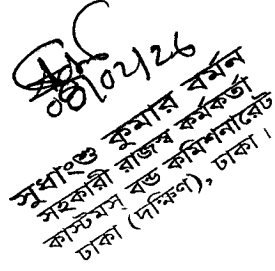 08/02/26
সুধাংশু কুমার বর্মন
সহকারী রাজস্ব কর্মকর্তা
কাস্টমস্ বন্ড কমিশনারেট
ঢাকা (দক্ষিণ), ঢাকা।